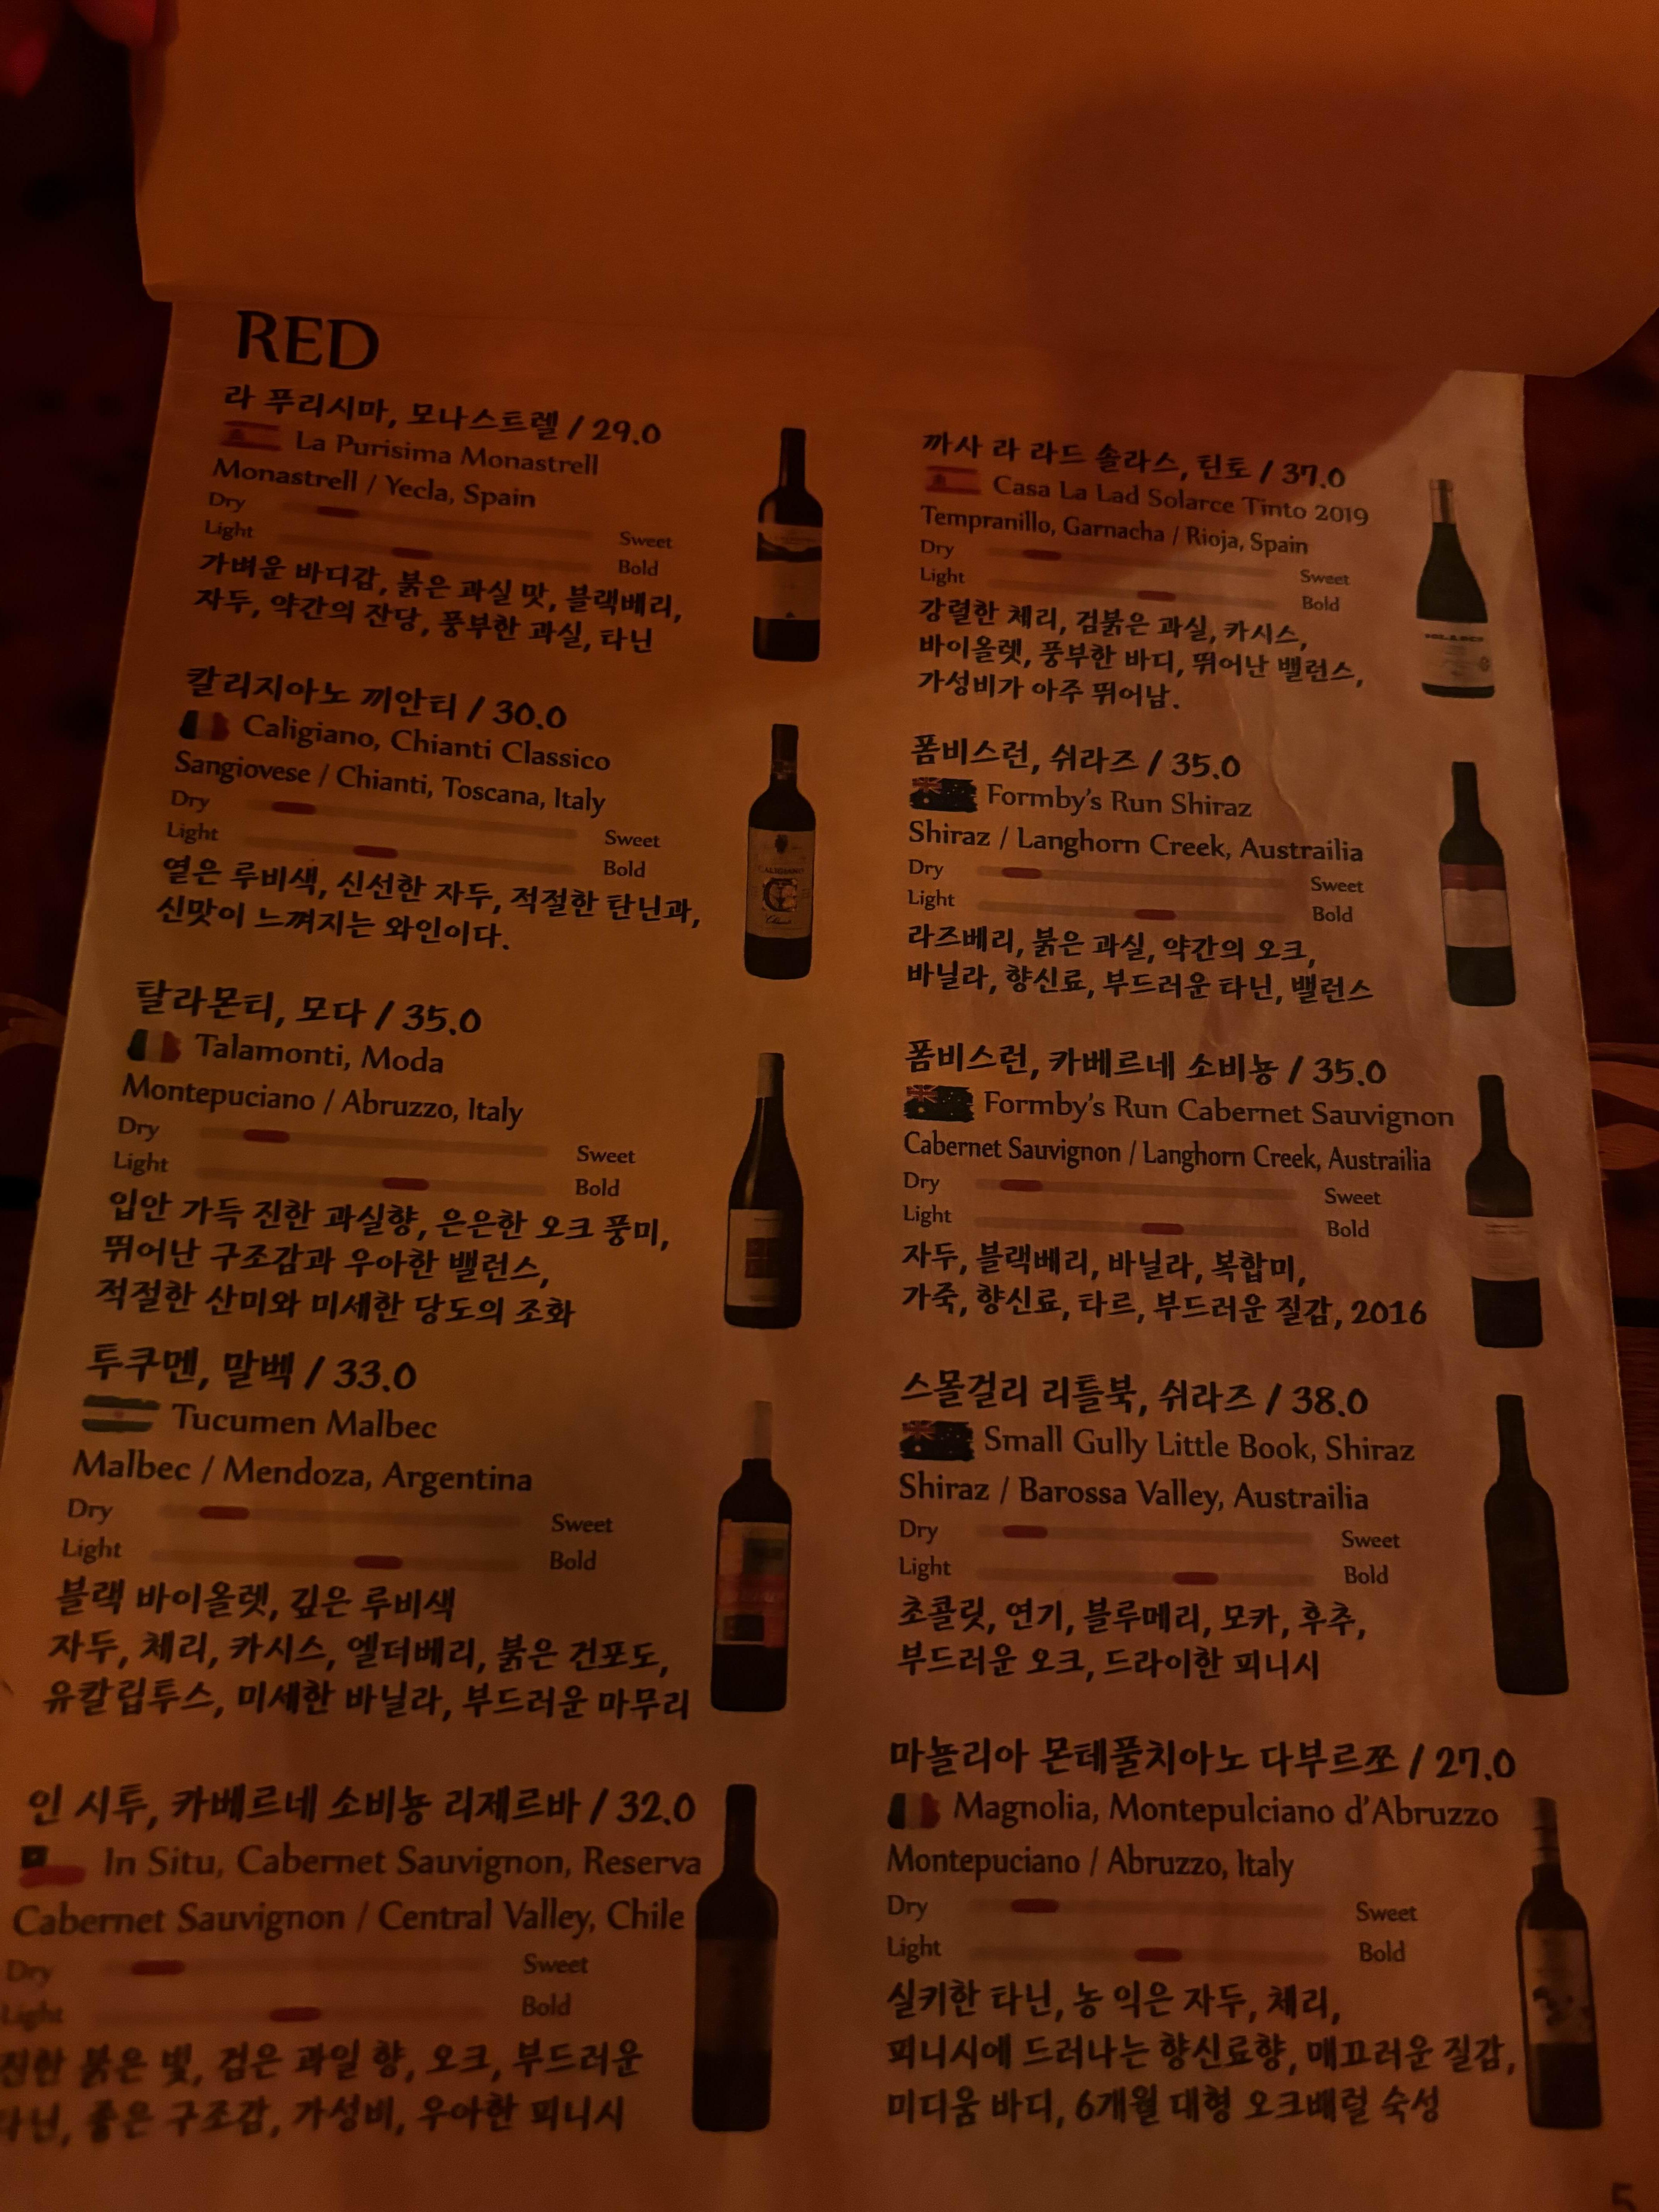 RED
라 푸리시마, 모나스트렐 / 29.0
La Purisima Monastrell
Monastrell / Yecla, Spain
Dry
Sweet
Light
Bold
가벼운 바디감, 붉은 과실 맛, 블랙베리,
자두, 약간의 잔당, 풍부한 과실, 타닌
칼리지아노 끼안티 / 30.0
Caligiano, Chianti Classico
Sangiovese / Chianti, Toscana, Italy
Dry
Sweet
Light
Bold
옅은 루비색, 신선한 자두, 적절한 탄닌과,
신맛이 느껴지는 와인이다.
탈라몬티, 모다 / 35.0
Talamonti, Moda
Montepuciano / Abruzzo, Italy
Dry
Sweet
Light
Bold
입안 가득 진한 과실향, 은은한 오크 풍미,
뛰어난 구조감과 우아한 밸런스,
적절한 산미와 미세한 당도의 조화
투쿠멘, 말벡 / 33.0
Tucumen Malbec
Malbec / Mendoza, Argentina
Dry
Sweet
Light
Bold
블랙 바이올렛, 깊은 루비색
자두, 체리, 카시스, 엘더베리, 붉은 건포도,
유칼립투스, 미세한 바닐라, 부드러운 마무리
인 시투, 카베르네 소비뇽 리제르바 / 32.0
In Situ, Cabernet Sauvignon, Reserva
Cabernet Sauvignon / Central Valley, Chile
Dry
Sweet
Light
Bold
진한 붉은 빛, 검은 과일 향, 오크, 부드러운
타닌, 좋은 구조감, 가성비, 우아한 피니시
까사 라 라드 솔라스, 틴토 / 37.0
Casa La Lad Solarce Tinto 2019
Tempranillo, Garnacha / Rioja, Spain
Dry
Sweet
Light
Bold
강렬한 체리, 검붉은 과실, 카시스,
바이올렛, 풍부한 바디, 뛰어난 밸런스,
가성비가 아주 뛰어남.
폼비스런, 쉬라즈 / 35.0
Formby's Run Shiraz
Shiraz / Langhorn Creek, Austrailia
Dry
Sweet
Light
Bold
라즈베리, 붉은 과실, 약간의 오크,
바닐라, 향신료, 부드러운 타닌, 밸런스
폼비스런, 카베르네 소비뇽 / 35.0
Formby's Run Cabernet Sauvignon
Cabernet Sauvignon / Langhorn Creek, Austrailia
Dry
Sweet
Light
Bold
자두, 블랙베리, 바닐라, 복합미,
가죽, 향신료, 타르, 부드러운 질감, 2016
스몰걸리 리틀북, 쉬라즈 / 38.0
Small Gully Little Book, Shiraz
Shiraz / Barossa Valley, Austrailia
Dry
Sweet
Light
Bold
초콜릿, 연기, 블루메리, 모카, 후추,
부드러운 오크, 드라이한 피니시
마뇰리아 몬테풀치아노 다부르쪼 / 27.0
Magnolia, Montepulciano d'Abruzzo
Montepuciano / Abruzzo, Italy
Dry
Sweet
Light
Bold
실키한 타닌, 농 익은 자두, 체리,
피니시에 드러나는 향신료향, 매끄러운 질감,
미디움 바디, 6개월 대형 오크배럴 숙성
CALIGIANO
Chianti
SOLARCE
5